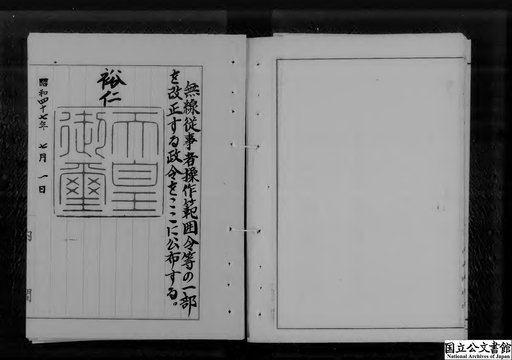 無線従事者操作範囲令等の一部
を改正する政令をここに公布する。
裕仁
天皇
御璽
昭和四十七年 七月 一日
国立公文書館
National Archives of Japan